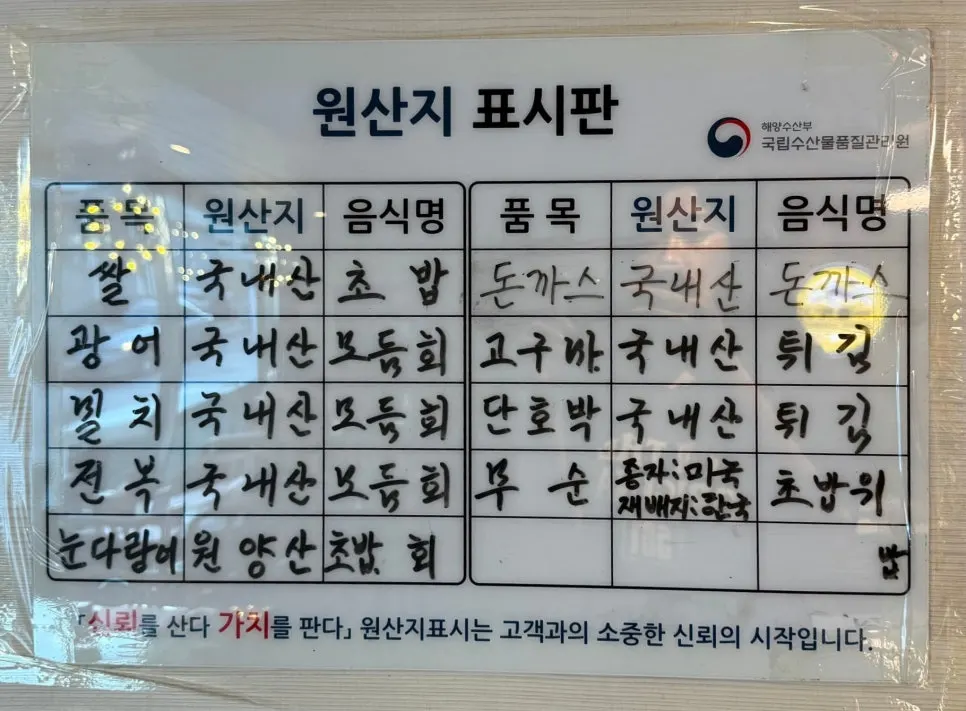 원산지 표시판
해양수산부
국립수산물품질관리원
품목 원산지 음식명 품목 원산지 음식명
쌀 국내산 초밥 돈까스 국내산 돈까스
광어 국내산 모듬회 고구마 국내산 튀김
밀치 국내산 모듬회 단호박 국내산 튀김
전복 국내산 모듬회 무순 종자:미국 초밥위
재배지:한국
눈다랑어 원양산 초밥, 회
「신뢰를 산다 가치를 판다」 원산지표시는 고객과의 소중한 신뢰의 시작입니다.